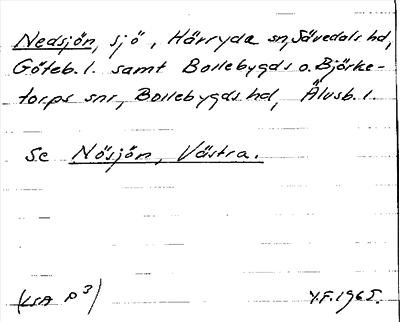 Nedsjön, sjö, Härryda sn, Sävedals hd,
Göteb. l. samt Bollebygds o. Björke-
torps snr, Bollebygds hd, Älvsb. l.
Se Nösjön, Västra.
(LSA P3) Y.F. 1965.